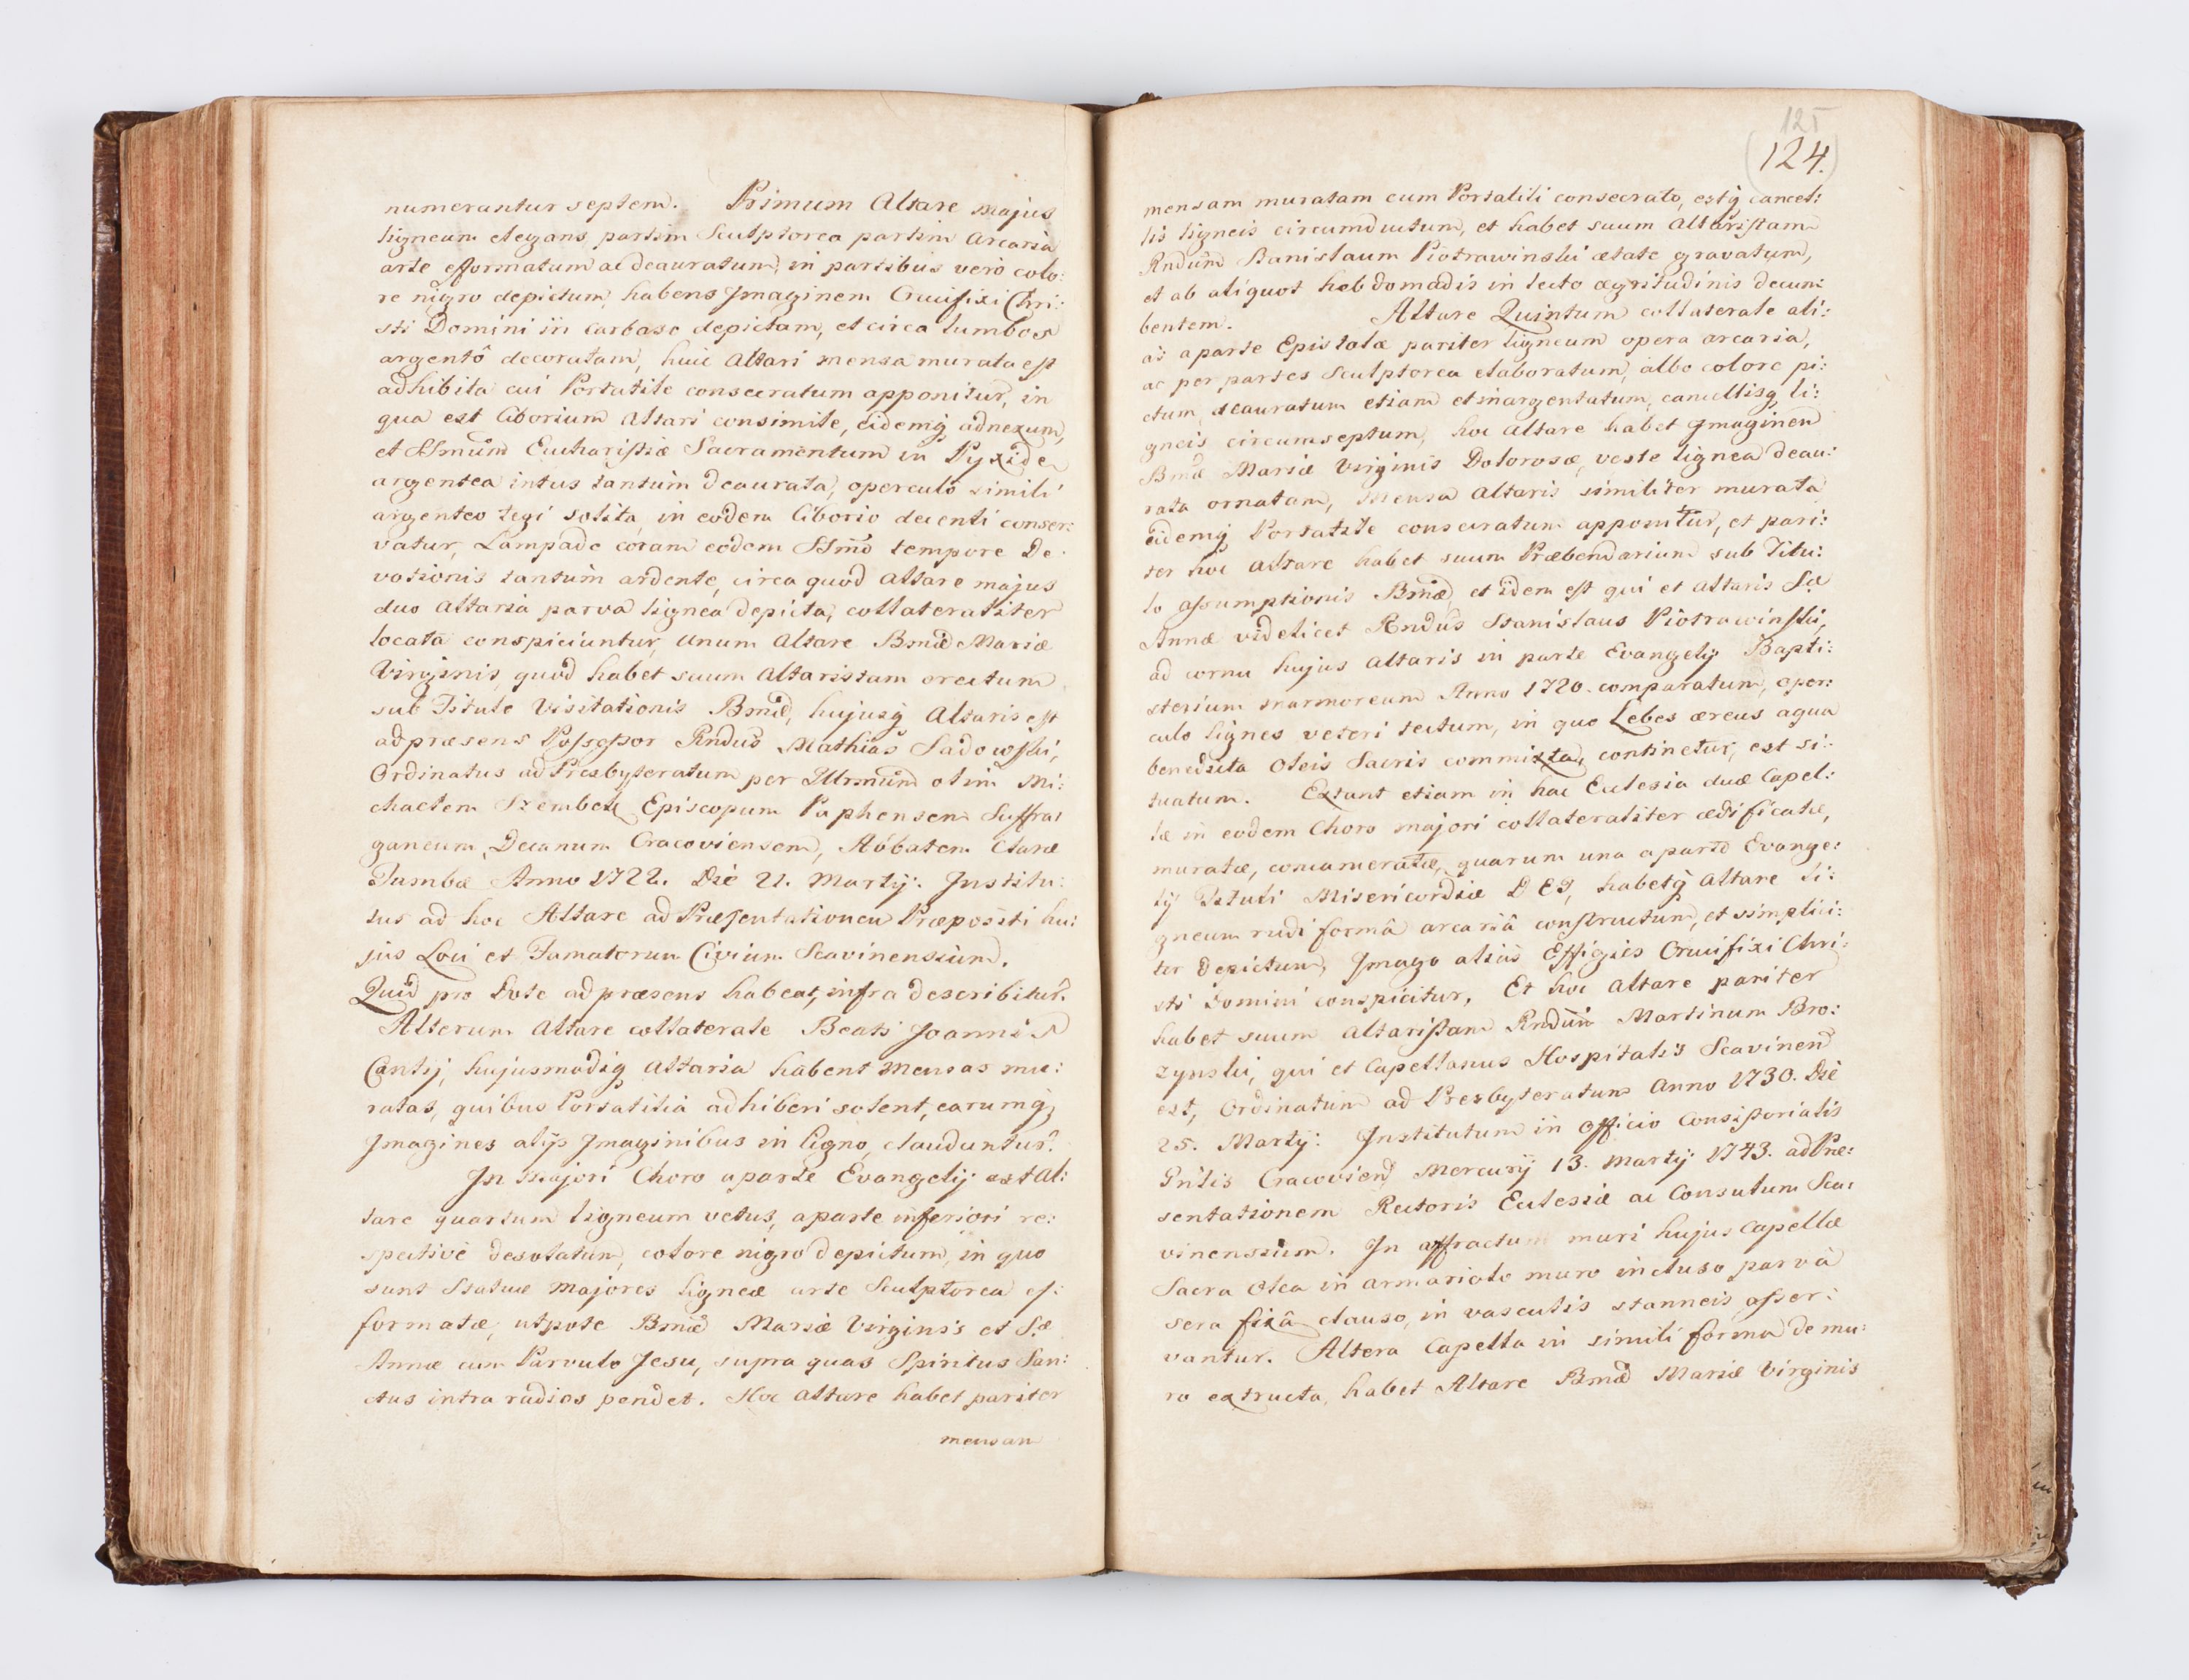 numerantur septem. Primum Altare majus
ligneum elegans partim Sculptorea partim Arcaria
arte efformatum ac deauratum, in partibus vero colo:
re nigro depictum, habens Jmaginem Crucifixi Chri:
sti Domini in carbaso depictam, et circa lumbos
argentô decoratam, huic Altari mensa murata est
adhibita cui Portatile consecratum apponitur, in
qua est Ciborium Altari consimile, eidemq̃ adnexum,
et SSmũm Eucharistiæ Sacramentum in Pyxide
argentea intus tantùm deaurata, operculô simili
argenteo tegi solita, in eodem Ciborio decenti conser:
vatur, Lampade coram eodem SSm̃o tempore De:
votionis tantùm ardente, circa quod Altare majus
duo Altaria parva lignea depicta, collateraliter
locata conspiciuntur, unum Altare Bmæ̃ Mariæ
Virginis, quod habet suum Altaristam erectum
sub Titulo Visitationis Bmæ̃, hujusq̃ Altaris est
ad præsens Possessor Rndũs Mathias Sadowski,
Ordinatus ad Presbyteratum per Jllrmũm olim Mi:
chaelem Szembek Episcopum Paphensem Suffra:
ganeum, Decanum Cracoviensem, Abbatem Claræ
Tumbæ Anno 1722. Die 21. Martij. Jnstitu:
tus ad hoc Altare ad Præsentationem Præpositi hu:
jus Loci et Famatorum Civium Scavinensium.
Quid pro Dote ad præsens habeat, infra describitur.
Alterum Altare collaterale Beati Joannis
Cantij, hujusmodiq̃ Altaria habent Mensas mu:
ratas, quibus Portatilia adhiberi solent, earumq̃
Jmagines alijs Jmaginibus in ligno, clauduntur.
Jn Majori Choro a parte Evangelij est Al:
tare quartum ligneum vetus, a parte inferiori re:
spective desolatum, colore nigro depictum, in quo
sunt Statuæ Majores ligneæ arte Sculptorea ef:
formatæ, utpote Bmæ̃ Mariæ Virginis et S.æ
Annæ cum Parvulo Jesu, supra quas Spiritus San:
ctus intra radios pendet. Hoc Altare habet pariter
mensam
125
124.
mensam muratam cum Portatili consecrato, estq̃ cancel:
lis ligneis circumductum, et habet suum Altaristam
Rndũm Stanislaum Piotrawinski ætate gravatum,
et ab aliquot hebdomadis in lecto ægritudinis decum:
bentem. Altare Quintum collaterale ali:
as a parte Epistolæ pariter ligneum opera arcaria,
ac per partes Sculptorea elaboratum, albo colore pi:
ctum deauratum etiam et inargentatum, cancellisq̃ li:
gneis circumseptum, hoc Altare habet Jmaginem
Bmæ̃ Mariæ Virginis Dolorosæ, veste lignea deau:
rata ornatam, Mensa Altaris similiter murata
eidemq̃ Portatile consecratum apponitur, et pari:
ter hoc Altare habet suum Præbendarium sub Titu:
lo Assumptionis Bmæ̃, et idem est qui et Altaris S.æ
Annæ videlicet Rndũs Stanislaus Piotrawinski,
ad cornu hujus Altaris in parte Evangelij Bapti:
sterium marmoreum Anno 1720. comparatum, oper:
culo ligneo veteri tectum, in quo Lebes æreus aqua
benedicta Oleis Sacris commixta, continetur, est si:
tuatum. Extant etiam in hac Ecclesia duæ Capel:
læ in eodem Choro majori collateraliter ædificatæ,
muratæ, concameratæ, quarum una a parte Evange:
lij Tituli Misericordiæ DEI, habetq̃ Altare li:
gneum rudi formâ arcariâ constructum, et simplici:
ter depictum, Jmago aliàs Effigies Crucifixi Chri:
sti Domini conspicitur, Et hoc Altare pariter
habet suum Altaristam Rndũm Martinum Bro:
zynski, qui et Capellanus Hospitalis Scavinen
est, Ordinatum ad Presbyteratum Anno 1730. Die
25. Martij: Jnstitutum in Officio Consistorialis
Gñlis Cracovien Mercurij 13. Martij 1743. ad Præ:
sentationem Rectoris Ecclesiæ ac Consulum Sca:
vinensium. Jn affractu muri hujus Capellæ
Sacra Olea in armariolo muro incluso parvâ
sera fixâ clauso, in vasculis stanneis asser:
vantur. Altera Capella in simili forma de mu:
ro extructa, habet Altare Bmæ̃ Mariæ Virginis